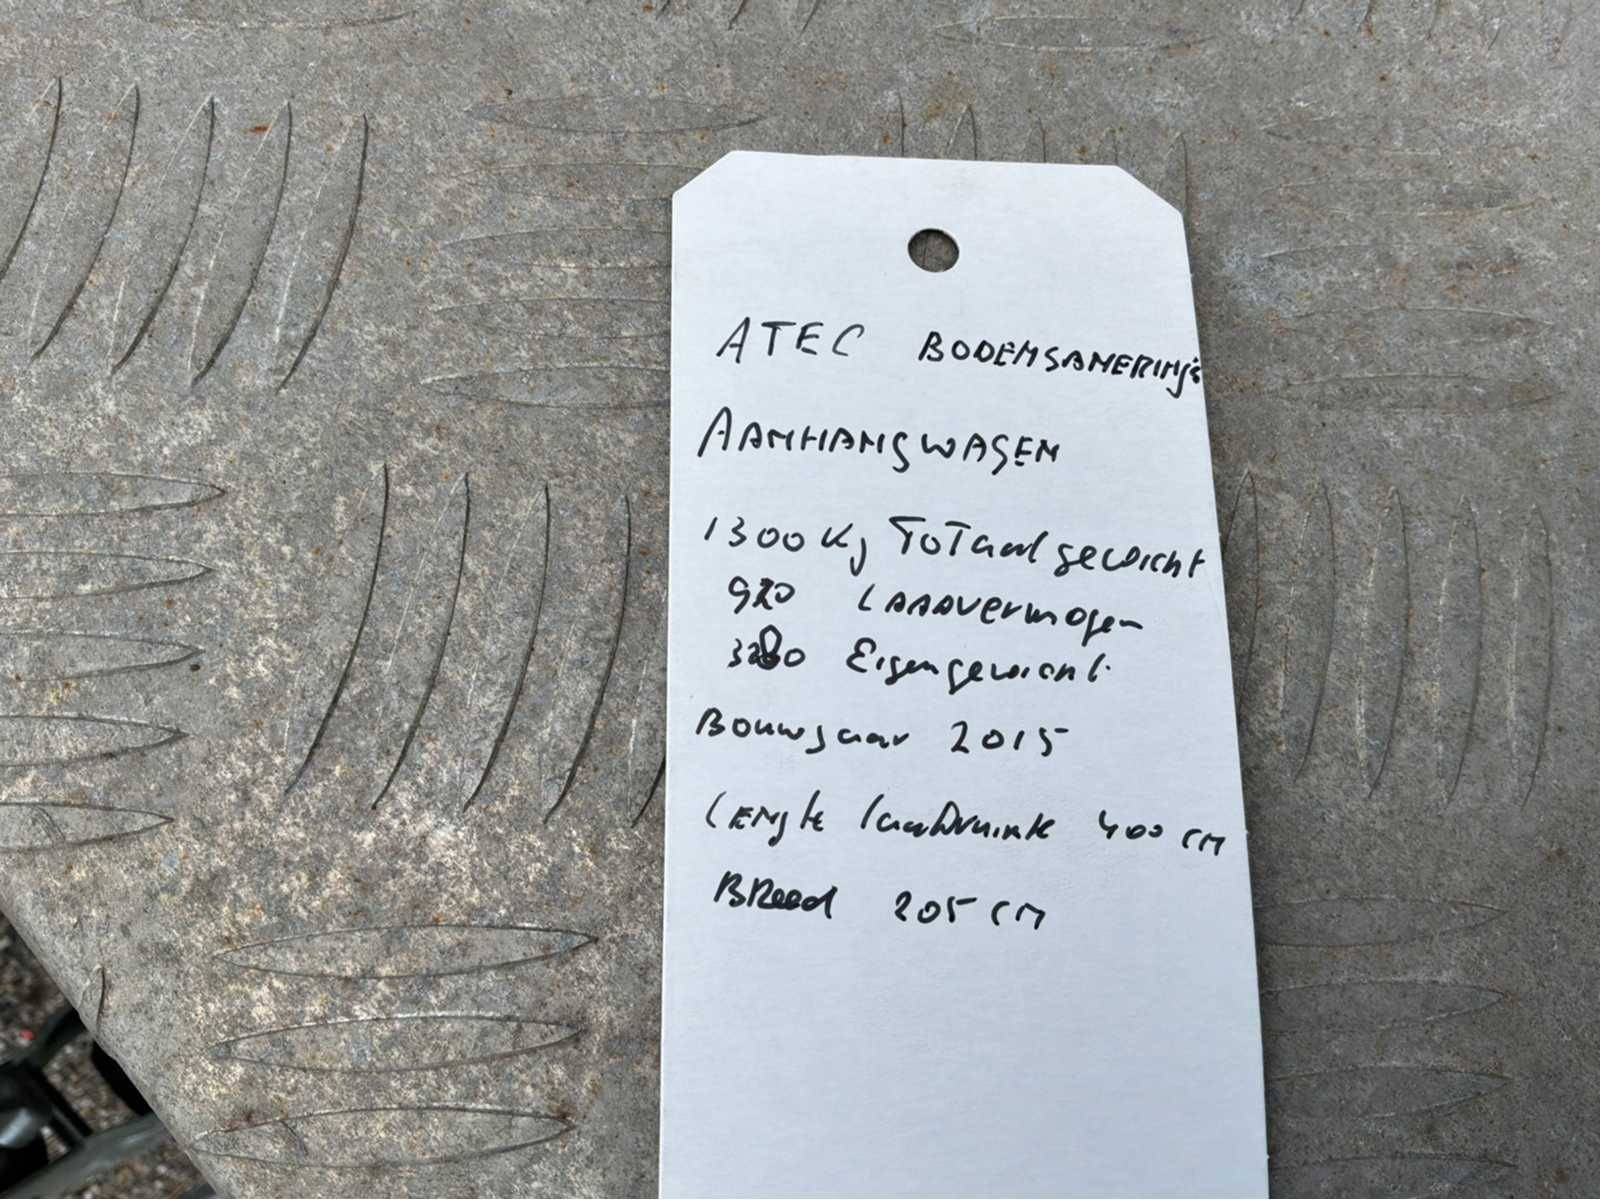 ATEC BODEMSANERINGS
AANHANGWAGEN
1300 Kg Totaal gewicht
920 Laadvermogen
380 Eigengewicht
Bouwjaar 2015
Lengte laadruimte 400 cm
Breed 205 cm